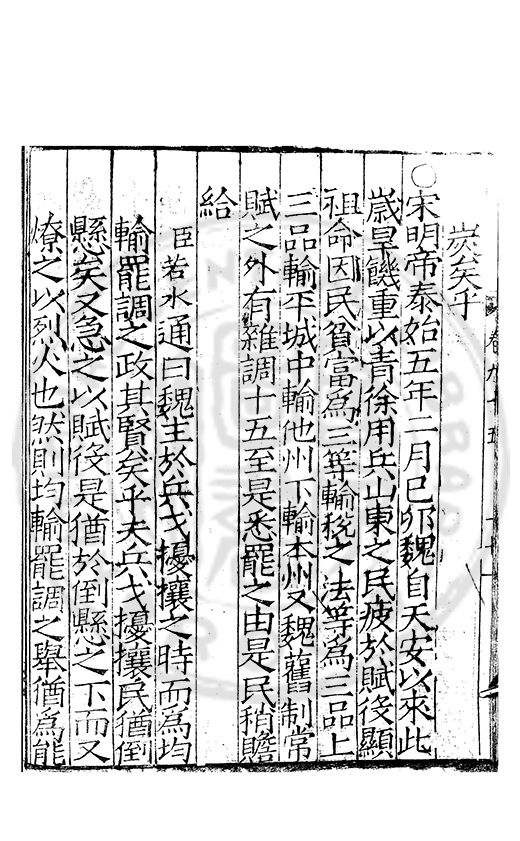 卷九十五
炭矣乎
○宋明帝泰始五年二月己卯魏自天安以來比
歲旱饑重以青徐用兵山東之民疲於賦役顯
祖命因民貧富爲三等輸稅之法等爲三品上
三品輸平城中輸他州下輸本州又魏舊制常
賦之外有雜調十五至是悉罷之由是民稍贍
給
臣若水通曰魏主於兵戈擾攘之時而爲均
輸罷調之政其賢矣乎夫兵戈擾攘民猶倒
懸矣又急之以賦役是猶於倒懸之下而又
燎之以烈火也然則均輸罷調之舉猶爲能